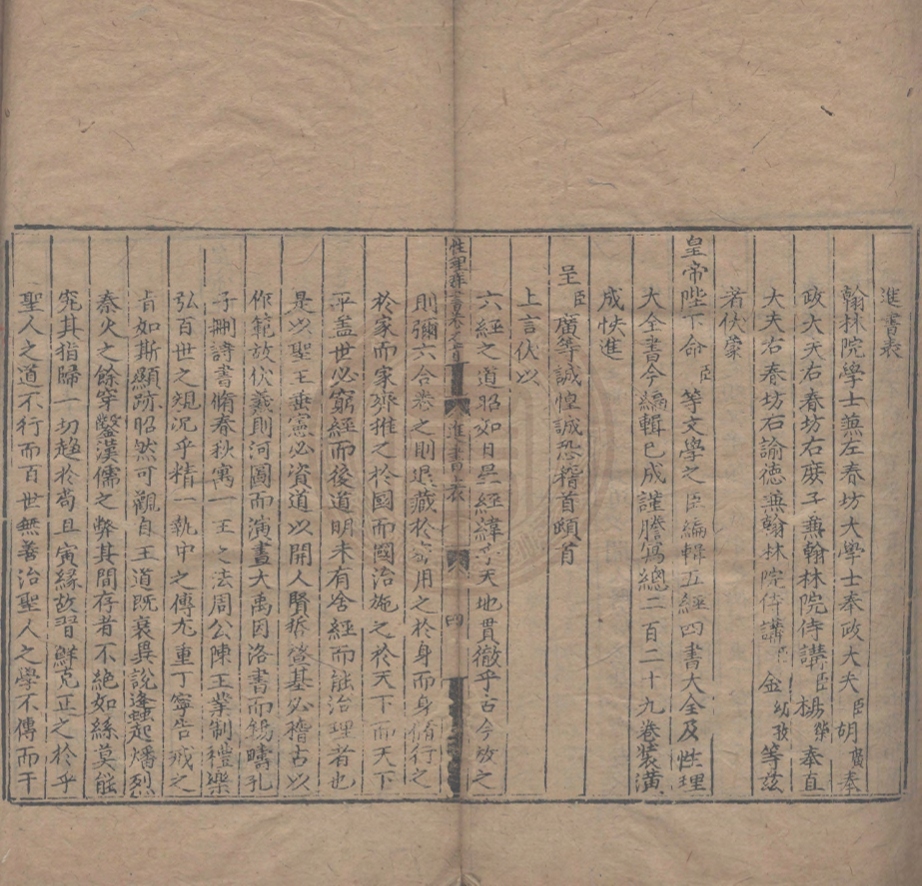 進書表
翰林院學士兼左春坊大學士奉政大夫臣胡廣奉
政大夫右春坊右庶子兼翰林院侍講臣楊榮奉直
大夫右春坊右諭德兼翰林院侍講臣金幼孜等茲
者伏蒙
皇帝陛下命臣等文學之臣編輯五經四書大全及性理
大全書今編輯已成謹謄寫總二百二十九卷裝潢
成帙進
呈臣廣等誠惶誠恐稽首頓首
上言伏以
六經之道昭如日星經緯乎天地貫徹乎古今放之
性理群書卷之首 進書表 四
則彌六合卷之則退藏於密用之於身而身脩行之
於家而家齊推之於國而國治施之於天下而天下
平盖世必窮經而後道明未有舍經而能治理者也
是以聖王垂憲必資道以開人賢哲登基必稽古以
作範故伏羲則河圖而演畫大禹因洛書而錫疇孔
子刪詩書脩春秋寓一王之法周公陳王業制禮樂
弘百世之規況乎精一執中之傳尤重丁寧告戒之
旨如斯顯跡昭然可觀自王道既衰異說蜂起燔烈
秦火之餘穿鑿漢儒之弊其間存者不絕如絲莫能
究其指歸一切趨於苟且寅緣故習鮮克正之於乎
聖人之道不行而百世無善治聖人之學不傳而千